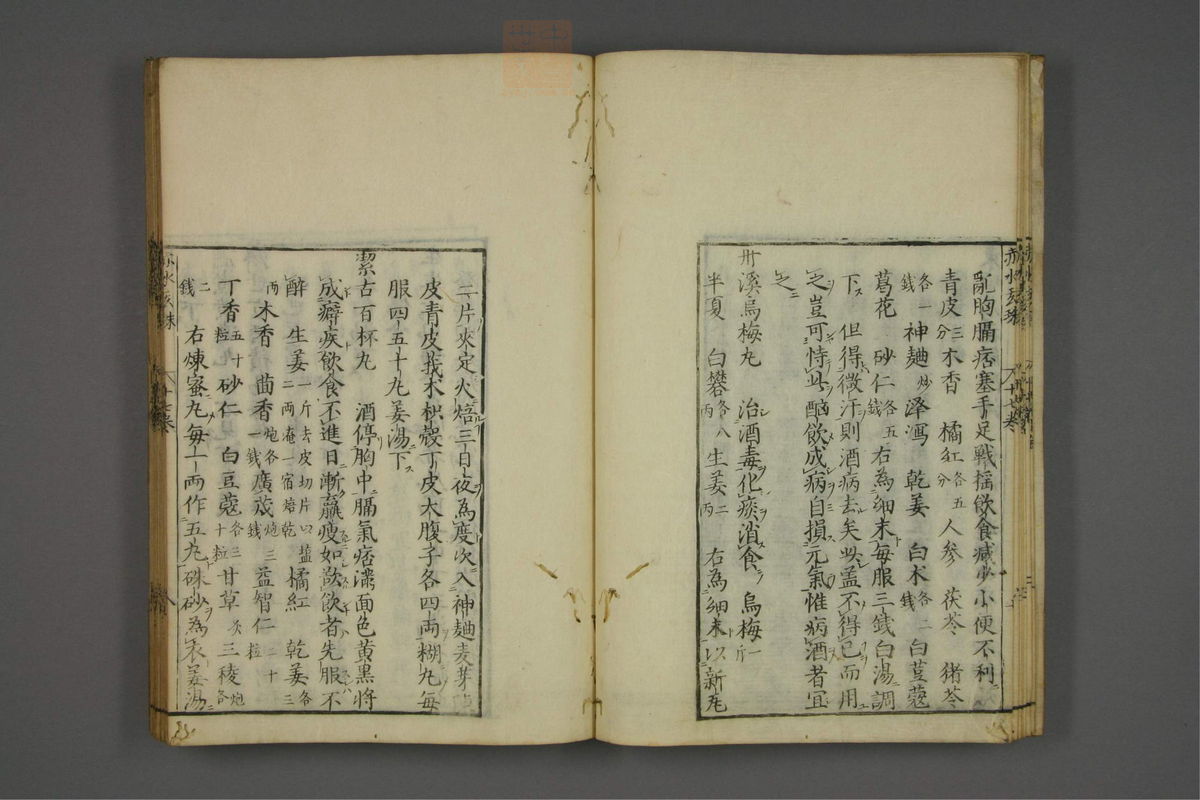 亂胸膈痞塞手足戦揺飲食减少小便不利
青皮三分木香 橘紅各五分 人參 茯苓 猪苓
各一錢 神麯炒 澤瀉 乾姜 白朮各二錢 白荳蔻
葛花 砂仁各五錢 右為細末毎服三錢白湯調
下 但得微汗則酒病去矣此蓋不得已而用
之豈可恃此酗飲成病自損元氣惟病酒者宜
之
丹溪烏梅丸 治酒毒化痰消食 烏梅一斤
半夏 白礬各八両 生姜二両 右為細末以新瓦
二片夾定火焙三日夜為度次入神麯麦芽
皮青皮莪朮枳殻丁皮大腹子各四両糊丸毎
服四五十丸姜湯下
潔古百杯丸 酒停胸中膈氣痞満面色黄黒將
成癖疾飲食不進日漸羸瘦如欲飲者先服不
醉 生姜一斤去皮切片以塩二両淹一宿焙乾 橘紅 乾姜各三
両 木香 茴香炮各一錢 廣茂炮三錢 益智仁二十粒
丁香五十粒 砂仁 白豆蔻各三十粒 甘草炙 三稜炮各
二錢 右煉蜜丸毎一両作五丸硃砂為衣姜湯